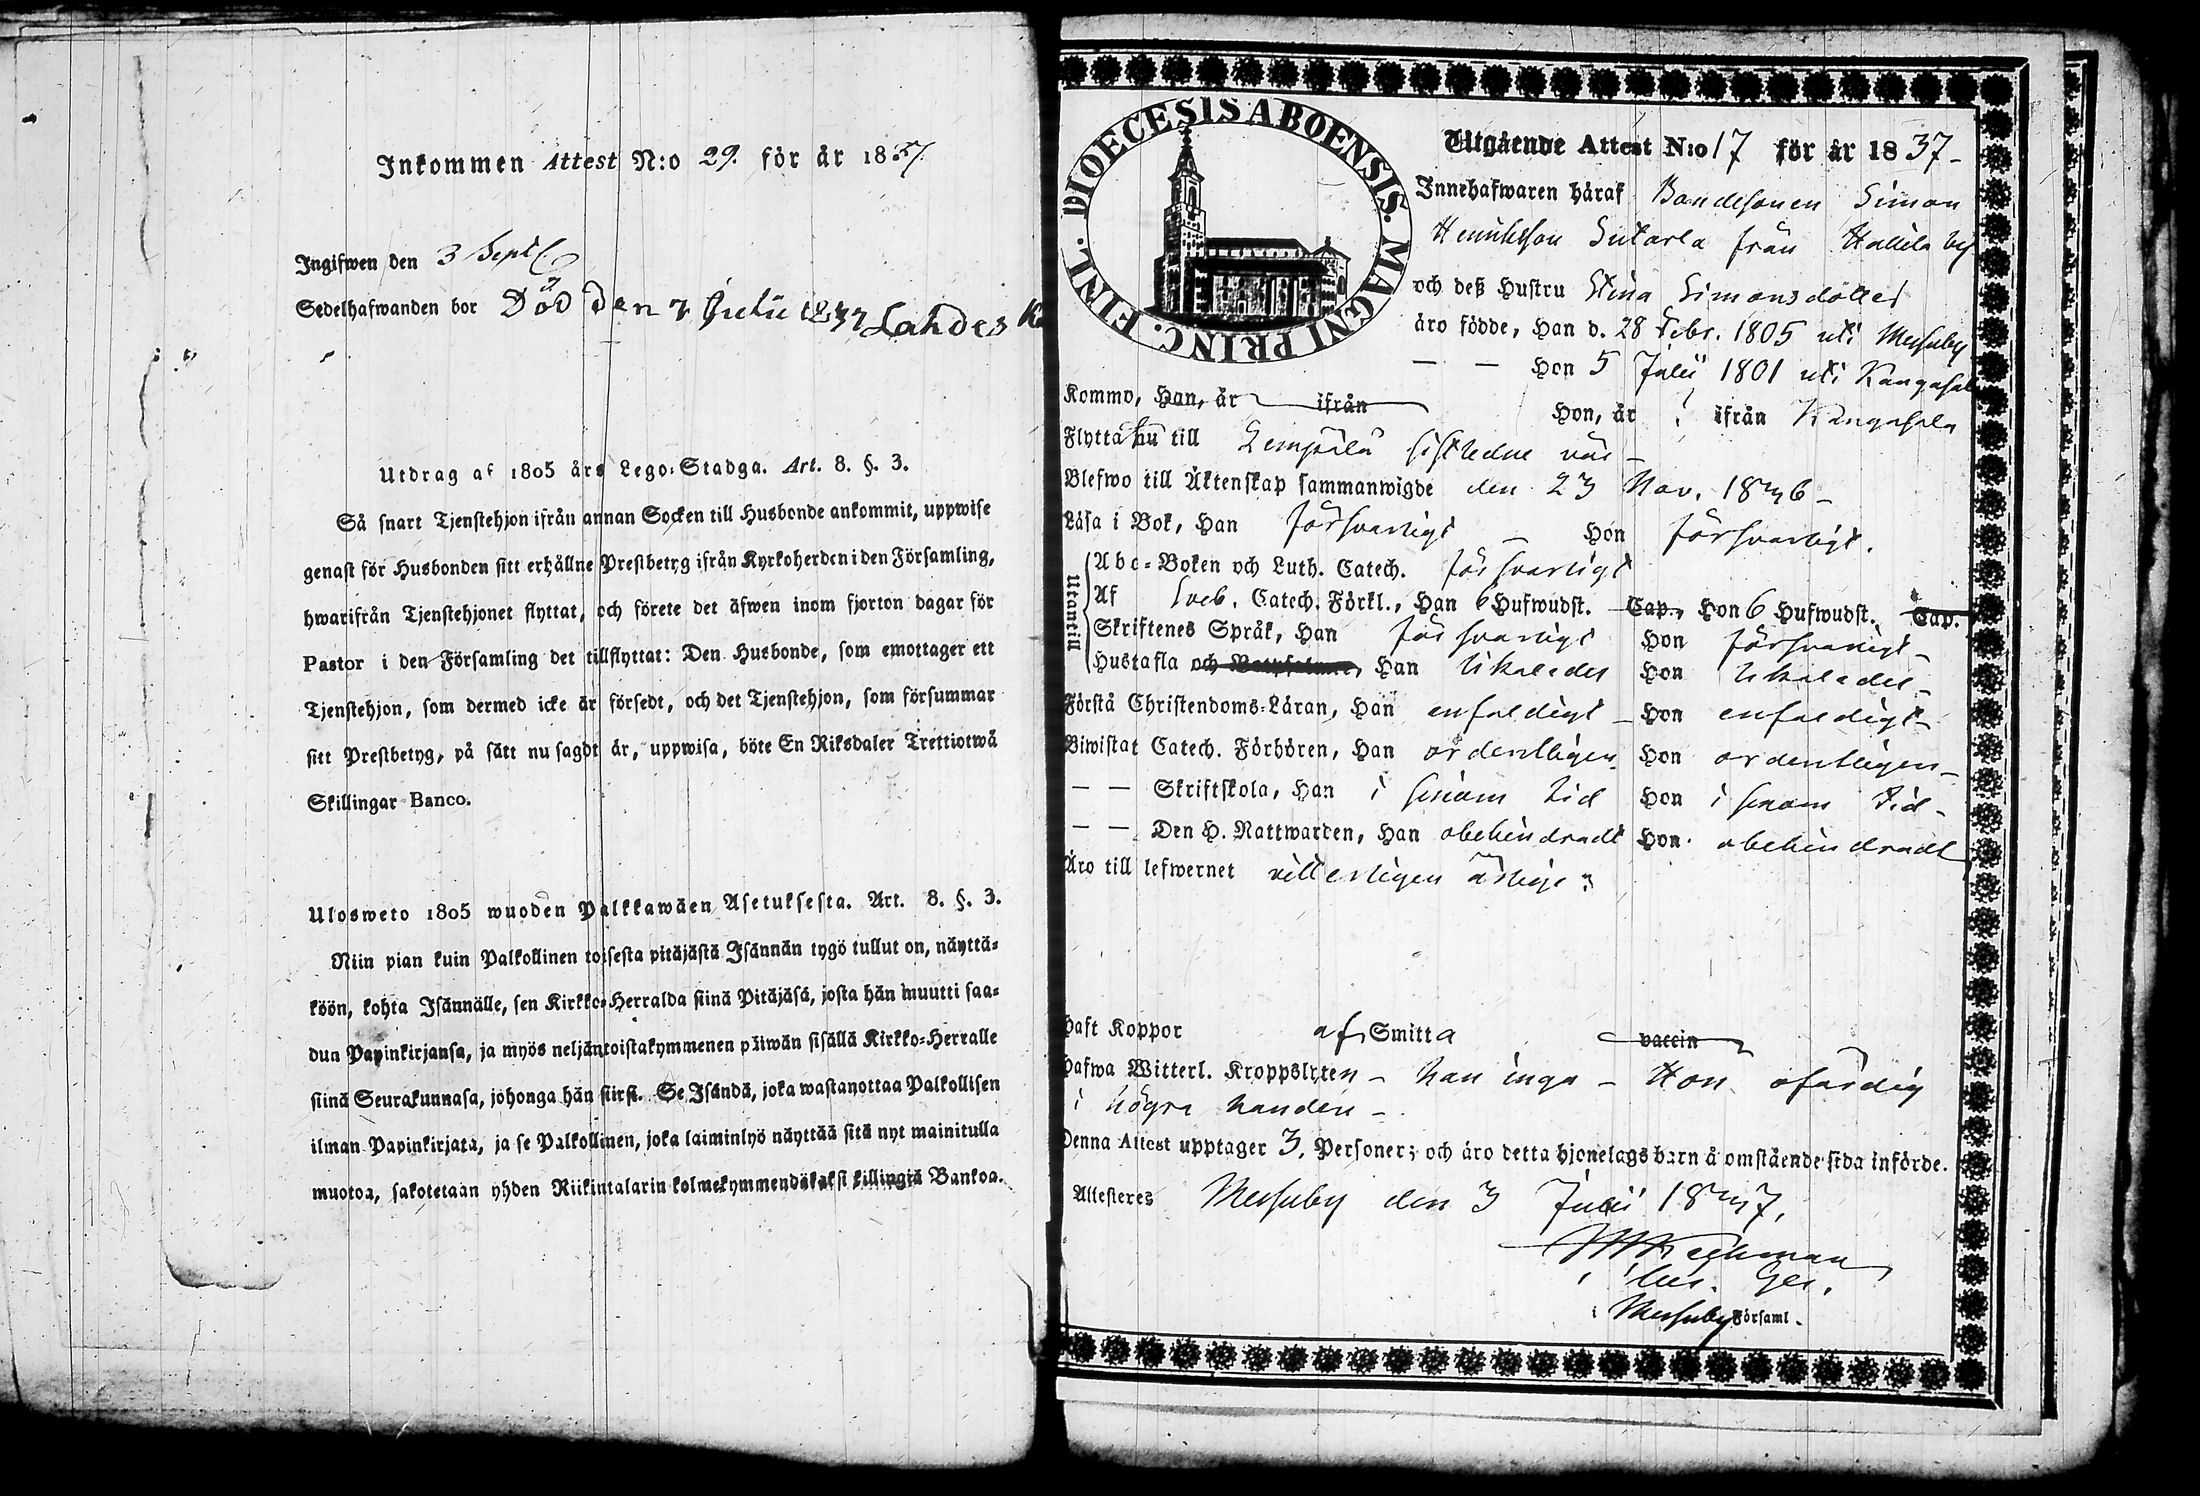 Inkommen Attest N:o 29. för år 1837.
Ingifwen den 3 Sept
Sedelhafwanden bor Död den 7 Julii 1837 Lahdes
Utdrag af 1805 års Lego-Stadga. Art. 8. §. 3.
Så snart Tjenstehjon ifrån annan Socken till Husbonde ankommit, uppwise
genast för Husbonden sitt erhållne Prestbetyg ifrån Kyrkoherden i den Församling,
hwarifrån Tjenstehjonet flyttat, och förete det äfwen inom fjorton dagar för
Pastor i den Församling det tillflyttat: Den Husbonde, som emottager ett
Tjenstehjon, som dermed icke är försedt, och det Tjenstehjon, som försummar
sitt Prestbetyg, på sätt nu sagdt är, uppwisa, böte En Riksdaler Trettiotwå
Skillingar Banco.
Ulosweto 1805 wuoden Palkkawäen Asetuksesta. Art. 8. §. 3.
Niin pian kuin Palkollinen toisesta pitäjästä Isännän tygö tullut on, näyttä-
köön, kohta Isännälle, sen Kirkko-Herralda siinä Pitäjäsä, josta hän muutti saa-
dun Papinkirjansa, ja myös neljäntoistakymmenen päiwän sisällä Kirkko-Herralle
siinä Seurakunnasa, johonga hän siirsi. Se Isändä, joka wastanottaa Palkollisen
ilman Papinkirjata, ja se Palkollinen, joka laiminlyö näyttää sitä nyt mainitulla
muotoa, sakotetaan yhden Riikintalarin kolmekymmendäkaksi killingiä Bankoa.
DIOECESIS ABOENSIS. MAGNI PRINC. FINL.
Utgående Attest N:o 17 för år 1837
Innehafwaren häraf Bondesonen Simon
Henriksson Sukarla från Hallila by
och deß Hustru Stina Simonsdotter
äro födde, Han d. 28 Febr. 1805 uti Messuby
— — Hon 5 Julii 1801 uti Kangasala
Kommo, Han, år ifrån Hon, år ifrån Kangasala
Flytta nu till Lempälä sistledne vår
Blefwo till Äktenskap sammanwigde den 23 Nov. 1836
Läsa i Bok, Han försvarligt Hon försvarligt.
Utantill
Abc-Boken och Luth. Catech. försvarligt
Af Sveb. Catech. Förkl., Han 6 Hufwudst. Cap., Hon 6 Hufwudst. Cap.
Skriftenes Språk, Han försvarligt Hon försvarligt
Hustafla och Han likaledes Hon likaledes
Förstå Christendoms-Läran, Han enfaldigt Hon enfaldigt
Biwistat Catech. Förhören, Han ordentligen Hon ordentligen
— — Skriftskola, Han i sinom tid Hon i sinom tid
— — Den H. Nattwarden, Han obehindradt Hon obehindradt
Äro till lefwernet
Haft Koppor af Smitta vaccin
Hafwa Witterl. Kroppslyten – han inga – Hon ofärdig
i högra handen –
Denna Attest upptager 3. Personer; och äro detta hjonelags barn å omstående sida införde.
Attesteres Messuby den 3 Julii 1837.
i Messuby Församl.